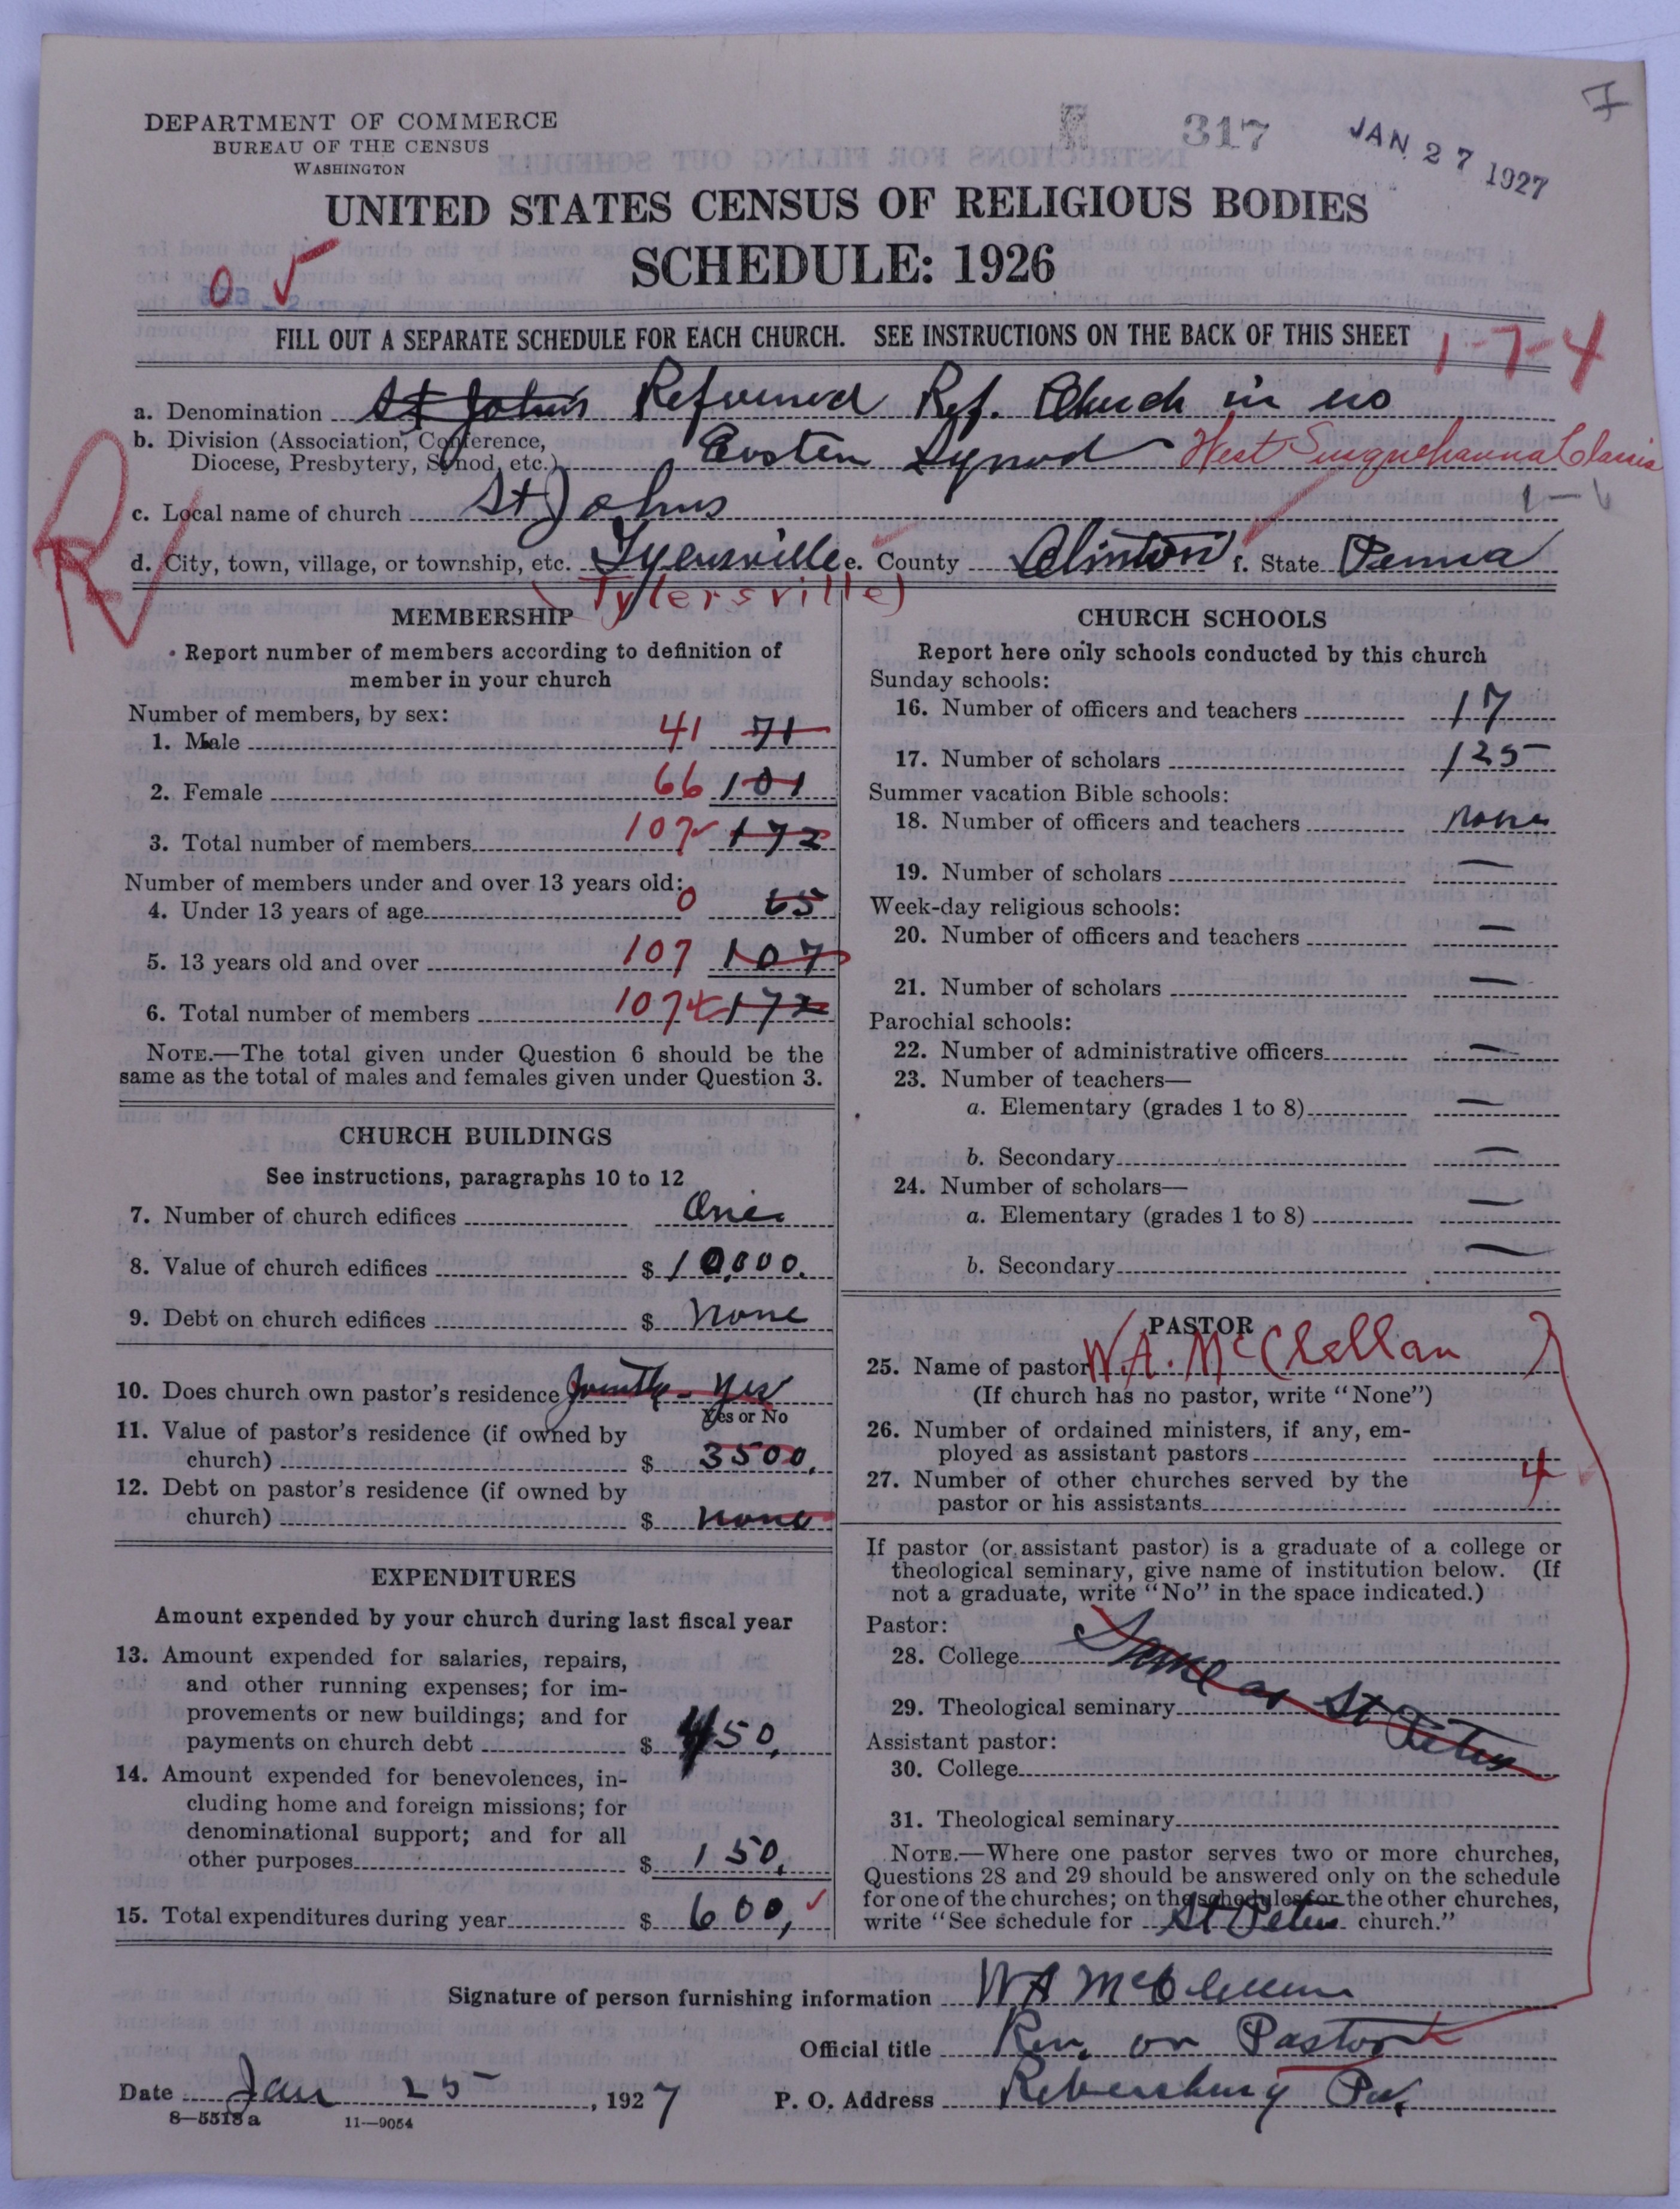 7
DEPARTMENT OF COMMERCE
BUREAU OF THE CENSUS
WASHINGTON
317
JAN 27 1927
UNITED STATES CENSUS OF RELIGIOUS BODIES
SCHEDULE: 1926
0
FILL OUT A SEPARATE SCHEDULE FOR EACH CHURCH. SEE INSTRUCTIONS ON THE BACK OF THIS SHEET
1-7-4
a. Denomination St Johns Reformed Ref. Church in US
b. Division (Association, Conference, Diocese, Presbytery, Synod, etc.) Eastern Synod West Susquehanna Classis
c. Local name of church St Johns
d. City, town, village, or township, etc. Tylersville e. County Clinton f. State Penna
(Tylersville)
R
MEMBERSHIP
Report number of members according to definition of
member in your church
Number of members, by sex:
1. Male 41 71
2. Female 66 101
3. Total number of members 107 172
Number of members under and over 13 years old:
4. Under 13 years of age 0 65
5. 13 years old and over 107 107
6. Total number of members 107 172
NOTE.—The total given under Question 6 should be the
same as the total of males and females given under Question 3.
CHURCH BUILDINGS
See instructions, paragraphs 10 to 12
7. Number of church edifices One
8. Value of church edifices $ 10,000.
9. Debt on church edifices $ none
10. Does church own pastor's residence Jointly - yes
Yes or No
11. Value of pastor's residence (if owned by
church) $ 3500.
12. Debt on pastor's residence (if owned by
church) $ none
EXPENDITURES
Amount expended by your church during last fiscal year
13. Amount expended for salaries, repairs,
and other running expenses; for im-
provements or new buildings; and for
payments on church debt $ 450.
14. Amount expended for benevolences, in-
cluding home and foreign missions; for
denominational support; and for all
other purposes $ 150.
15. Total expenditures during year $ 600,
CHURCH SCHOOLS
Report here only schools conducted by this church
Sunday schools:
16. Number of officers and teachers 17
17. Number of scholars 125
Summer vacation Bible schools:
18. Number of officers and teachers none
19. Number of scholars —
Week-day religious schools:
20. Number of officers and teachers —
21. Number of scholars —
Parochial schools:
22. Number of administrative officers —
23. Number of teachers—
a. Elementary (grades 1 to 8) —
b. Secondary —
24. Number of scholars—
a. Elementary (grades 1 to 8) —
b. Secondary —
PASTOR
25. Name of pastor W. A. McClellan
(If church has no pastor, write "None")
26. Number of ordained ministers, if any, em-
ployed as assistant pastors
27. Number of other churches served by the
pastor or his assistants 4
If pastor (or assistant pastor) is a graduate of a college or
theological seminary, give name of institution below. (If
not a graduate, write "No" in the space indicated.)
Pastor:
28. College Same as St Peters
29. Theological seminary
Assistant pastor:
30. College
31. Theological seminary
NOTE.—Where one pastor serves two or more churches,
Questions 28 and 29 should be answered only on the schedule
for one of the churches; on the schedules for the other churches,
write "See schedule for St Peters church."
Signature of person furnishing information W A McClellan
Official title Rev. or Pastor
Date Jan 25, 1927 P. O. Address Rebersburg Pa.
8—5518a 11—9054